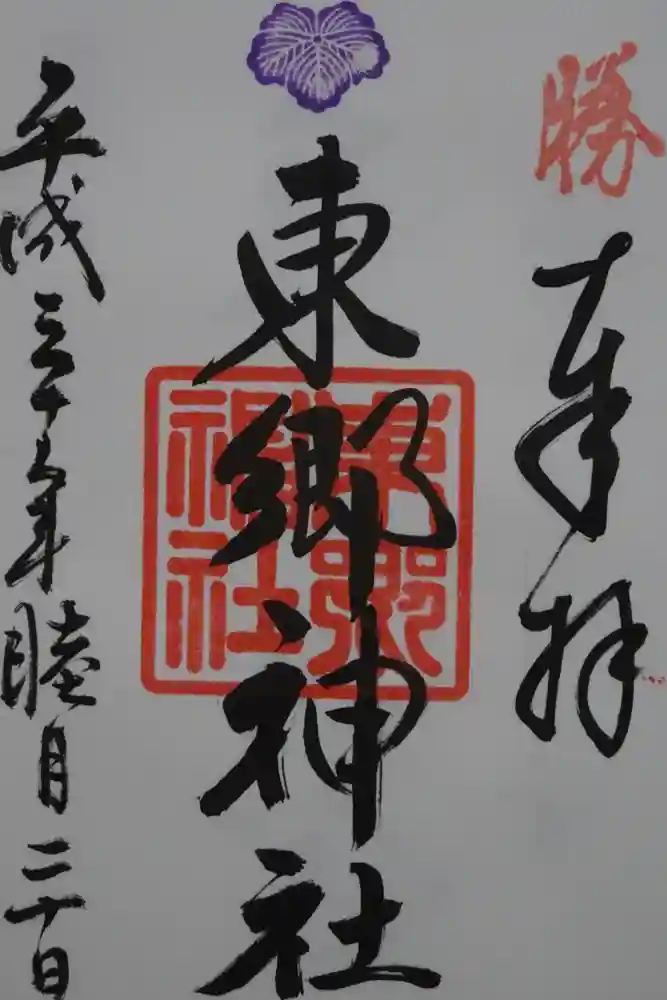 勝
奉拝
東郷神社
東郷神社
平成三十年睦月二十日